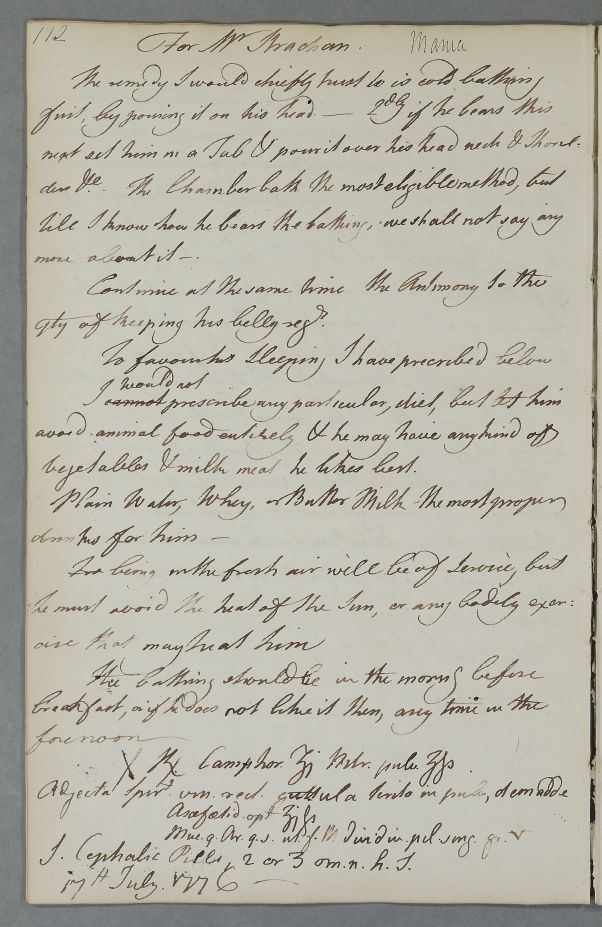 112
For Mr Strachan. Mania
The remedy I would chiefly trust to is cold bathing
first, by pouring it on his head. — 2dly if he bears this
next set him in a Tub & pour it over his head neck & Shoul-
ders &c. The Chamber bath the most eligible method, but
till I know how he bears the bathing, we shall not say any
more about it —.
Continue at the same time the Antimony to the
qty of keeping his belly regr.
To favour his Sleeping I have prescribed below
I would not
I cannot prescribe any particular, diet, but let him
avoid animal food entirely & he may have any kind of
vegetables & milk meat he likes best.
Plain Water, Whey, or Butter Milk the most proper
drinks for him —
being in the fresh air will be of Service, but
he must avoid the heat of the Sun, or any bodily exer:
cise that may heat him
The bathing should be in the morng before
breakfast, or if he does not like it then, any time in the
forenoon
X ℞ Camphor. ʒj Nitr. pulv. ʒſs
Adjecta Spirt. vin. rect. guttula terito in pulv, dein adde
Asafœtid. opt ʒjſs
Muc. g. Ar. q. s. ut f. M. divid in pil sing. gr. v
S. Cephalic Pills, 2 or 3 om. n. h. S.
17th July. 1776 —